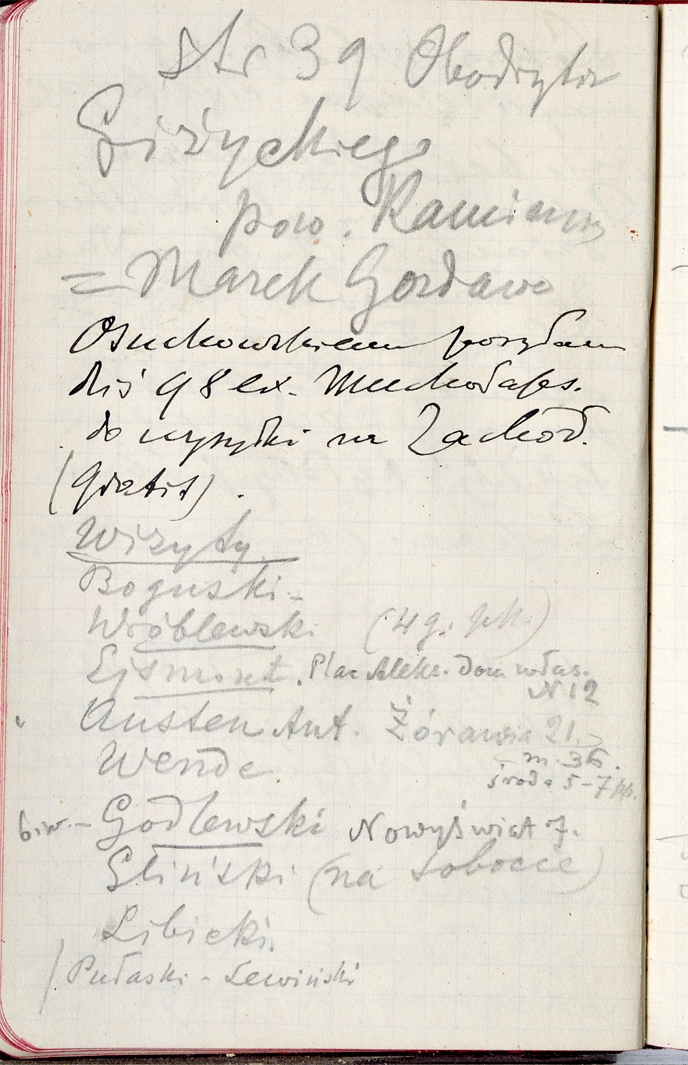 str 39 Obodryta
Giżyckiego
pow. Kamienny
= Marek Gordawo
Osuchowskiemu posyłam
dziś 98 ex.
do wysyłki na Zachód.
(gratis).
Wizyty
Boguski -
Wróblewski (4 g. )
Ejsmont. Plac Aleks. Dom włas.
N 12
Austen Ant. Żórawia 21.
m. 36.
Wende
środa 5-7
- Godlewski Nowyświat 7.
Gliński (na sobocie)
Libicki.
/ Pułaski - Lewiński